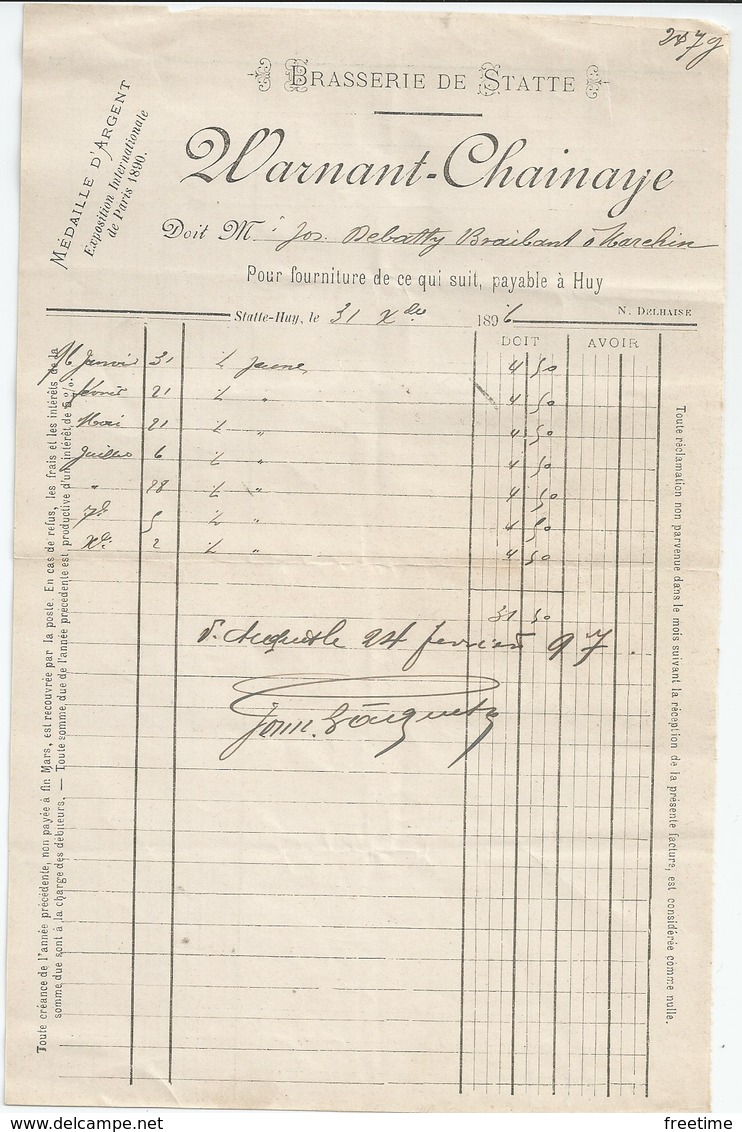 2479
BRASSERIE DE STATTE
MÉDAILLE D'ARGENT
Exposition Internationale
de Paris 1890.
Warnant-Chainaye
Doit Mr Jos. Debatty Braibant à Marchin
Pour fourniture de ce qui suit, payable à Huy
Statte-Huy, le 31 Xbre 1896
N. DELHAISE
DOIT AVOIR
96 Janvier 31 ½ jaune 4 50
février 21 ½ " 4 50
Mai 21 ½ " 4 50
Juillet 6 ½ " 4 50
" 28 ½ " 4 50
7bre 5 ½ " 4 50
Xbre 2 ½ " 4 50
31 50
P. Acquit le 24 février 97.
Toute créance de l'année précédente, non payée à fin Mars, est recouvrée par la poste. En cas de refus, les frais et les intérêts de la
somme due sont à la charge des débiteurs. — Toute somme due de l'année précédente est productive d'un intérêt de 5 %.
Toute réclamation non parvenue dans le mois suivant la réception de la présente facture, est considérée comme nulle.
freetime